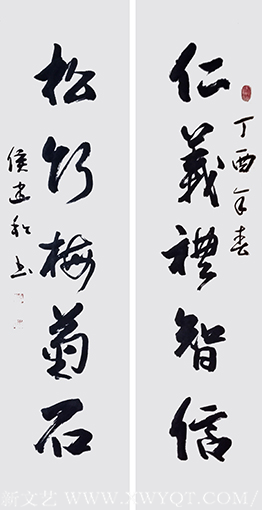 丁酉年春
仁義禮智信
松竹梅菊石
侯建和书
新文艺 WWW.XWYQT.COM